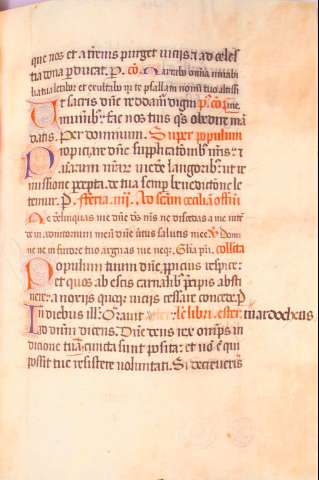 que nos et a terrenis purget viciis: et ad celes
tia dona perducat. P. co. Narrabo omnia mirabi
lia tua letabor et exultabo in te psallam nomini tuo altissi
Ut sacris dne reddamur digni p. co. me.
muneribus: fac nos tuis qs obedire man
datis. Per dominum. Super populum
Propiciare dne supplicationibus nris: et
animarum nrarum medere langoribus: ut re
missione percepta. de tua semp benedictione le
temur. P. feria .iiii. Ad sctam ceciliam
Ne derelinquas me dne ds ms ne discedas a me inten
de in adiutorium meum dne virtus salutis mee. Domi
ne ne in furore tuo arguas me neqz. Gla pri. collecta
Populum tuum dne propicius respice:
et quos ab escis carnalibus precipis absti
nere: a noxiis quoqz viciis cessare concede. P
In diebus ill: Oravit le. libri. ester. mardocheus
ad dnm dicens. Dne deus rex omips in
dicione tua cuncta sunt posita: et non e qui
possit tue resistere voluntati. Si decreveris